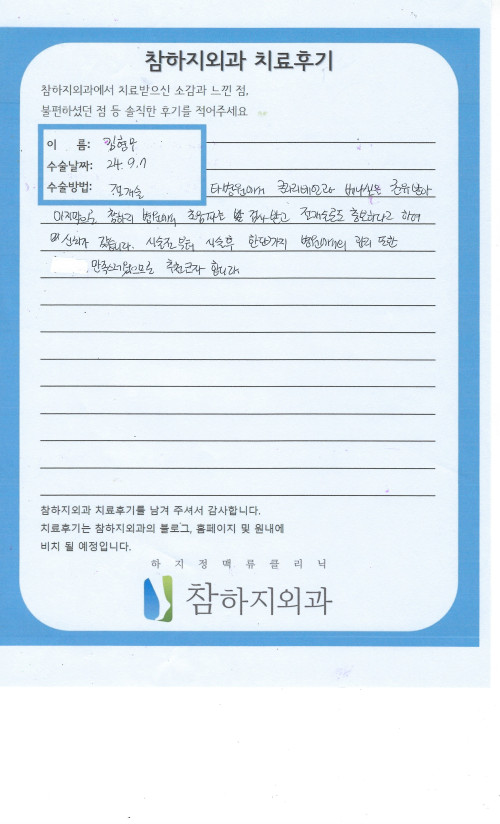 참하지외과 치료후기
참하지외과에서 치료받으신 소감과 느낀 점,
불편하셨던 점 등 솔직한 후기를 적어주세요
이 름: 김형우
수술날짜: 24.9.7
수술방법: 전개술
타병원에서 클라리베인과 베나실을 권유받다
마지막으로 참하지 병원에서 초음파를 검사 받고 전개술로도 충분하다고 하여
신뢰가 갔습니다. 시술전 부터 시술후 한달까지 병원에서의 관리 또한
만족스러웠으므로 추천코자 합니다
참하지외과 치료후기를 남겨 주셔서 감사합니다.
치료후기는 참하지외과의 블로그, 홈페이지 및 원내에
비치 될 예정입니다.
하지정맥류클리닉
참하지외과